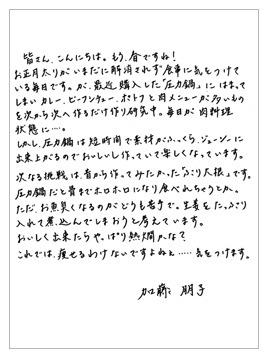 皆さん、こんにちは。もう、春ですね!
お正月太りがいまだに解消されず食事に気をつけて
いる毎日です。が、最近購入した「圧力鍋」にはまって
しまいカレー、ビーフシチュー、ポトフと肉メニューが多いもの
を次から次へ作るだけ作り研究中。毎日が肉料理
状態に…。
しかし、圧力鍋は短時間で素材がふっくら、ジューシーに
出来上がるのでおいしいし作っていて楽しくなっています。
次なる挑戦は、昔から作ってみたかった「ぶり大根」です。
圧力鍋だと骨までホロホロになり食べれちゃうとか。
ただ、お魚臭くなるのがどうも苦手で。生姜をたっぷり
入れて煮込んでしまおうと考えています。
おいしく出来たらやっぱり熱燗かな?
これでは、痩せるわけないですよねぇ……気をつけます。
加藤 朋子